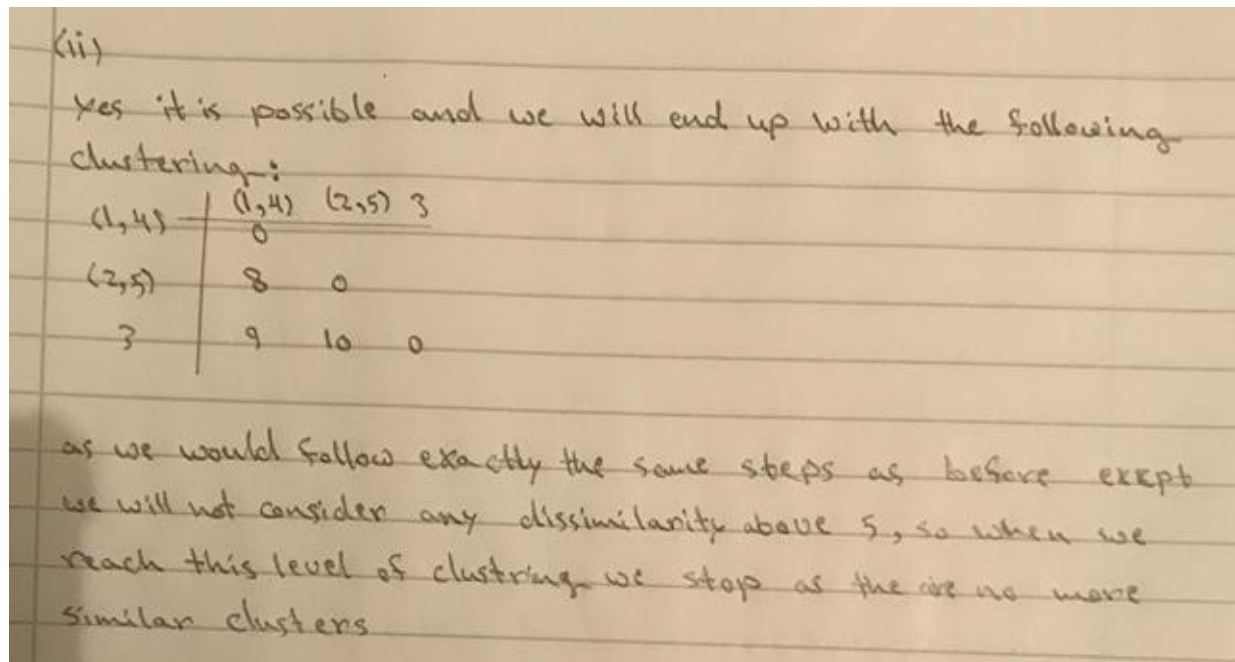 (ii)
Yes it is possible and we will end up with the following
clustering:
(1,4) (2,5) 3
(1,4) 0
(2,5) 8 0
3 9 10 0
as we would follow exactly the same steps as before exept
we will not consider any dissimilarity above 5, so when we
reach this level of clustring we stop as the are no more
similar clusters